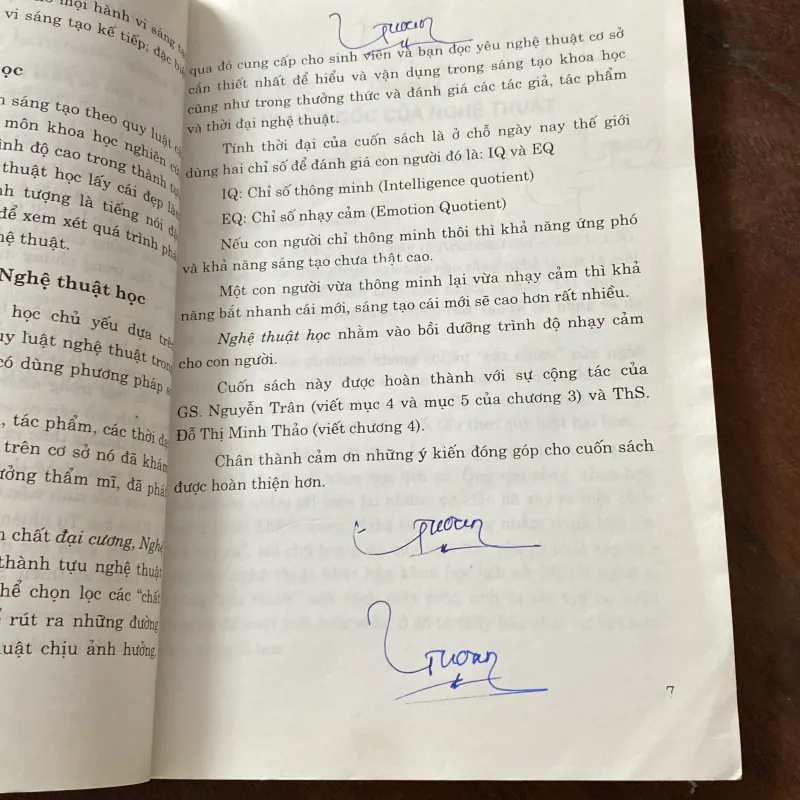 mọi hành vi sáng
vi sáng tạo kế tiếp; đặc
ọc
sáng tạo theo quy luật
môn khoa học nghiên
độ cao trong thành
thuật học lấy cái đẹp
tượng là tiếng nói
để xem xét quá trình
thuật.
Nghệ thuật học
học chủ yếu dựa
luật nghệ thuật
có dùng phương pháp
tác phẩm, các thời
trên cơ sở nó đã
thẩm mĩ, đã
chất đại cương, Nghệ
thành tựu nghệ thuật
chọn lọc các “chất
rút ra những đường
chịu ảnh hưởng
qua đó cung cấp cho sinh viên và bạn đọc yêu nghệ thuật cơ sở
cần thiết nhất để hiểu và vận dụng trong sáng tạo khoa học
cũng như trong thưởng thức và đánh giá các tác giả, tác phẩm
và thời đại nghệ thuật.
Tính thời đại của cuốn sách là ở chỗ ngày nay thế giới
dùng hai chỉ số để đánh giá con người đó là: IQ và EQ
IQ: Chỉ số thông minh (Intelligence quotient)
EQ: Chỉ số nhạy cảm (Emotion Quotient)
Nếu con người chỉ thông minh thôi thì khả năng ứng phó
và khả năng sáng tạo chưa thật cao.
Một con người vừa thông minh lại vừa nhạy cảm thì khả
năng bắt nhanh cái mới, sáng tạo cái mới sẽ cao hơn rất nhiều.
Nghệ thuật học nhằm vào bồi dưỡng trình độ nhạy cảm
cho con người.
Cuốn sách này được hoàn thành với sự cộng tác của
GS. Nguyễn Trân (viết mục 4 và mục 5 của chương 3) và ThS.
Đỗ Thị Minh Thảo (viết chương 4).
Chân thành cảm ơn những ý kiến đóng góp cho cuốn sách
được hoàn thiện hơn.
7